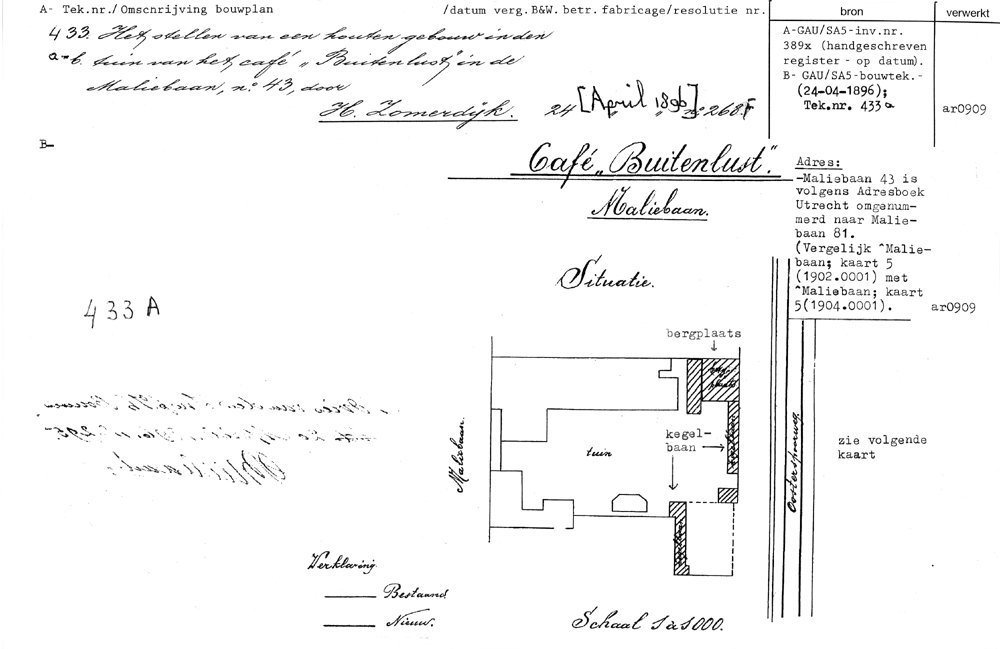 A- Tek.nr./Omscnrijving bouwplan /datum verg.B&W. betr. fabricage/resolutie nr. bron verwerkt
433. Het stellen van een houten gebouw in den
a-b. tuin van het café „Buitenlust," in de
Maliebaan, no. 43, door
H. Zomerdijk. 24 [April 1896] no. 268.F
A-GAU/SA5-inv.nr.
389x (handgeschreven
register - op datum).
B- GAU/SA5-bouwtek.-
(24-04-1896);
Tek.nr. 433a
ar0909
B-
Café „Buitenlust".
Maliebaan.
Situatie.
Adres:
-Maliebaan 43 is
volgens Adresboek
Utrecht omgenum-
merd naar Malie-
baan 81.
(Vergelijk ^Malie-
baan; kaart 5
(1902.0001) met
^Maliebaan; kaart
5(1904.0001).
ar0909
433 A
bergplaats
kegel-
baan
tuin
Maliebaan.
Oosterspoorweg.
zie volgende
kaart
Verklaring
Bestaand
Nieuw.
Schaal 1 à 1000.